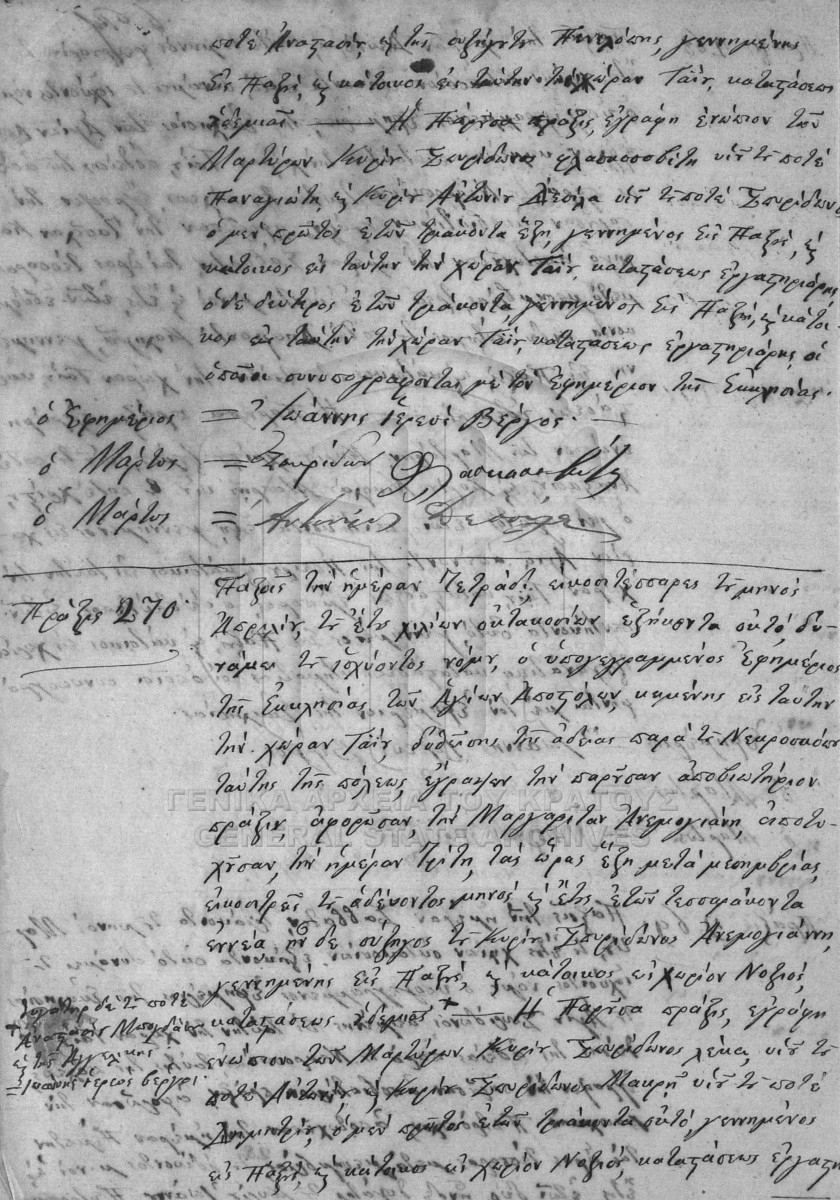 ποτέ Αναστασίου, καὶ τῆς συζύγου Πηνελόπης, γεννημένης
εἰς Παξούς, καὶ κάτοικος εἰς ταύτην τὴν χώραν Γαΐου, καταστάσεως
οὐδεμιᾶς — Ἡ Παροῦσα πράξις, ἐγράφη ἐνώπιον τῶν
Μαρτύρων Κυρίου Σπυρίδωνος υἱοῦ τοῦ ποτέ
Παναγιώτη, καὶ Κυρίου Ἀντωνίου υἱοῦ τοῦ ποτέ Σπυρίδωνος
ὁ μὲν πρῶτος ἐτῶν τριάκοντα ἕξη, γεννημένος εἰς Παξούς, καὶ
κάτοικος εἰς ταύτην τὴν χώραν Γαΐου, καταστάσεως ἐργαστηριάρης
ὁ δὲ δεύτερος ἐτῶν τριάκοντα, γεννημένος εἰς Παξούς, καὶ κάτοι-
κος εἰς ταύτην τὴν χώραν Γαΐου, καταστάσεως ἐργαστηριάρης, οἱ
ὁποῖοι συνυπογράφονται μὲ τὸν Ἐφημέριον τῆς Ἐκκλησίας.
ὁ Ἐφημέριος = Ἰωάννης Ἱερεὺς Βέργος. —
ὁ Μάρτυς = Σπυρίδων
ὁ Μάρτυς = Ἀντώνιος
Πράξις 270.
Παξοῖς τὴν ἡμέραν Τετράδη, εἰκοσιτέσσαρες τοῦ μηνὸς
Ἀπριλίου, τοῦ ἔτους χιλίων ὀκτακοσίων ἑξήκοντα ὀκτό, δυ-
νάμει τοῦ ἰσχύοντος νόμου, ὁ ὑπογεγραμμένος Ἐφημέριος
τῆς Ἐκκλησίας τῶν Ἁγίων Ἀποστόλων, κειμένης εἰς ταύτην
τὴν χώραν Γαΐου, δοθείσης τῆς ἀδείας παρὰ τοῦ Νεκροσκόπου
ταύτης τῆς πόλεως, ἔγραψεν τὴν παροῦσαν ἀποβιωτήριον
πράξιν, ἀφοροῦσαν, τὴν Μαργαρίταν Ἀνεμογιάνη, ἀποτυ-
χοῦσαν, τὴν ἡμέραν Τρίτη, τὰς ὥρας ἕξη μετὰ μεσημβρίας,
εἰκοσιτρεῖς τοῦ ἀδεύοντος μηνὸς καὶ ἔτους, ἐτῶν τεσσαράκοντα
ἐννέα, ἦν δὲ σύζυγος τοῦ Κυρίου Σπυρίδωνος Ἀνεμογιάννη,
γεννημένης εἰς Παξούς, καὶ κάτοικος εἰς χωρίον Νοζιού,
καταστάσεως οὐδεμιᾶς + — Ἡ Παροῦσα πράξις, ἐγράφη
ἐνώπιον τῶν Μαρτύρων Κυρίου Σπυρίδωνος Λέκα, υἱοῦ τοῦ
ποτέ Ἀντωνίου, καὶ Κυρίου Σπυρίδωνος Μακρῆ υἱοῦ τοῦ ποτέ
Δημητρίου, ὁ μὲν πρῶτος ἐτῶν τριάκοντα ὀκτό, γεννημένος
εἰς Παξούς, καὶ κάτοικος εἰς χωρίον Νοζιού, καταστάσεως ἐργάτης
θυγάτηρ δὲ τοῦ ποτέ
+ Ἀναστασίου
καὶ τῆς Ἀγγελικῆς
= Ἰωάννης ἱερεὺς βέργος.
ΓΕΝΙΚΑ ΑΡΧΕΙΑ ΤΟΥ ΚΡΑΤΟΥΣ
GENERAL STATE ARCHIVES